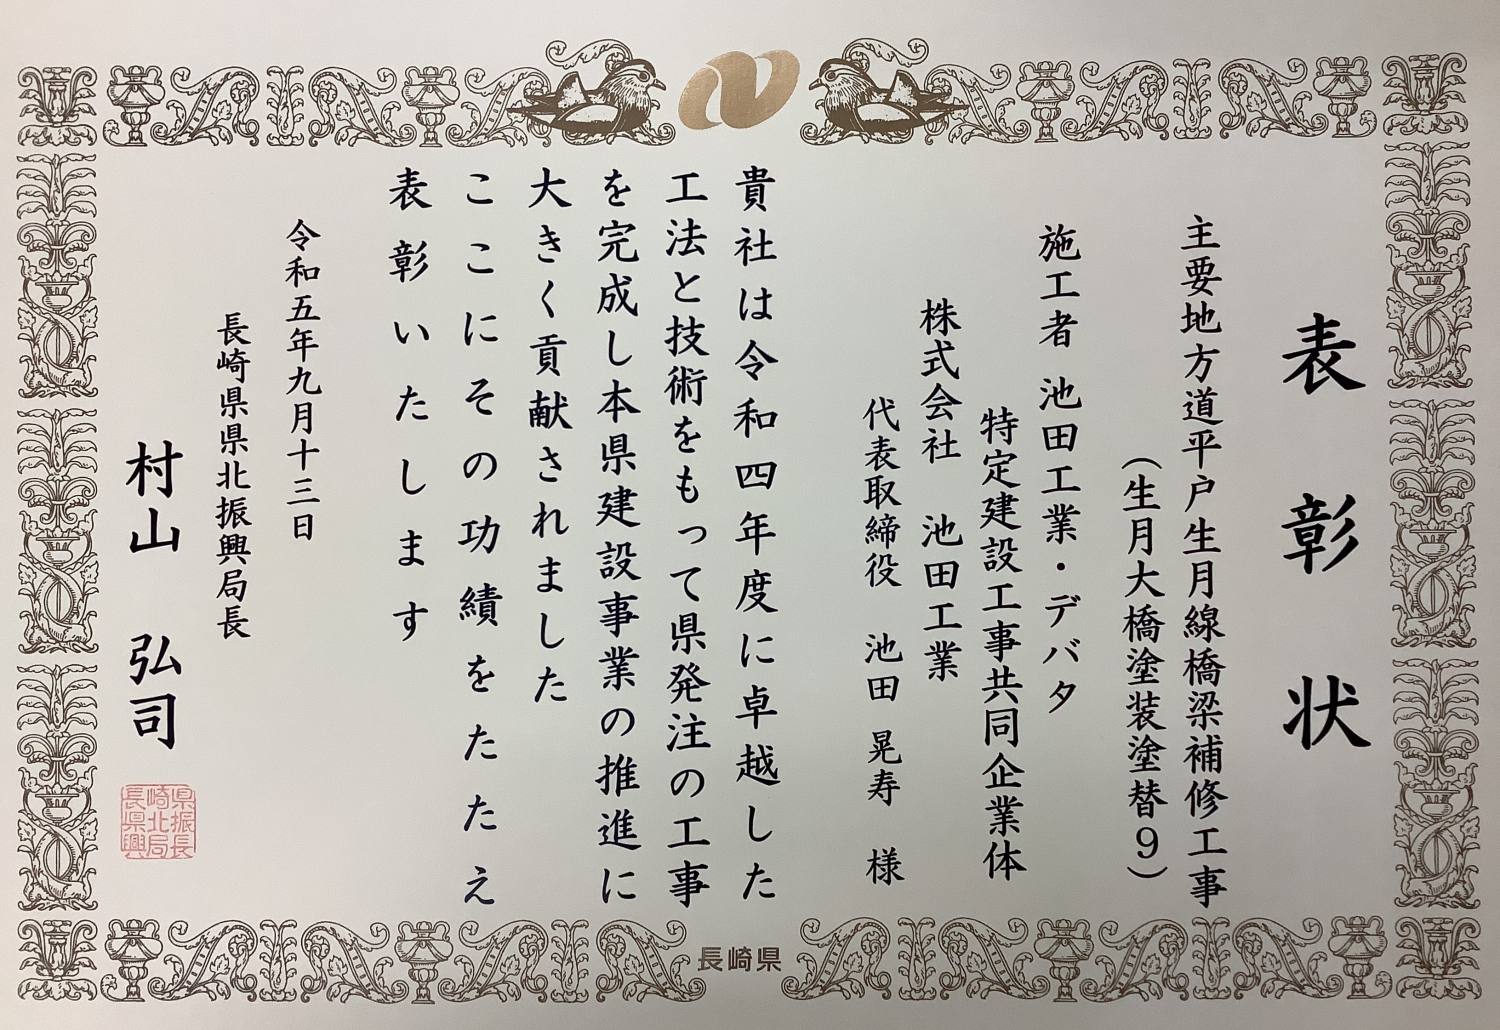 表彰状
主要地方道平戸生月線橋梁補修工事
(生月大橋塗装塗替9)
施工者 池田工業・デバタ
特定建設工事共同企業体
株式会社 池田工業
代表取締役 池田 晃寿 様
貴社は令和四年度に卓越した
工法と技術をもって県発注の工事
を完成し本県建設事業の推進に
大きく貢献されました
ここにその功績をたたえ
表彰いたします
令和五年九月十三日
長崎県県北振興局長
村山 弘司
県振長
崎北局
長県興
長崎県